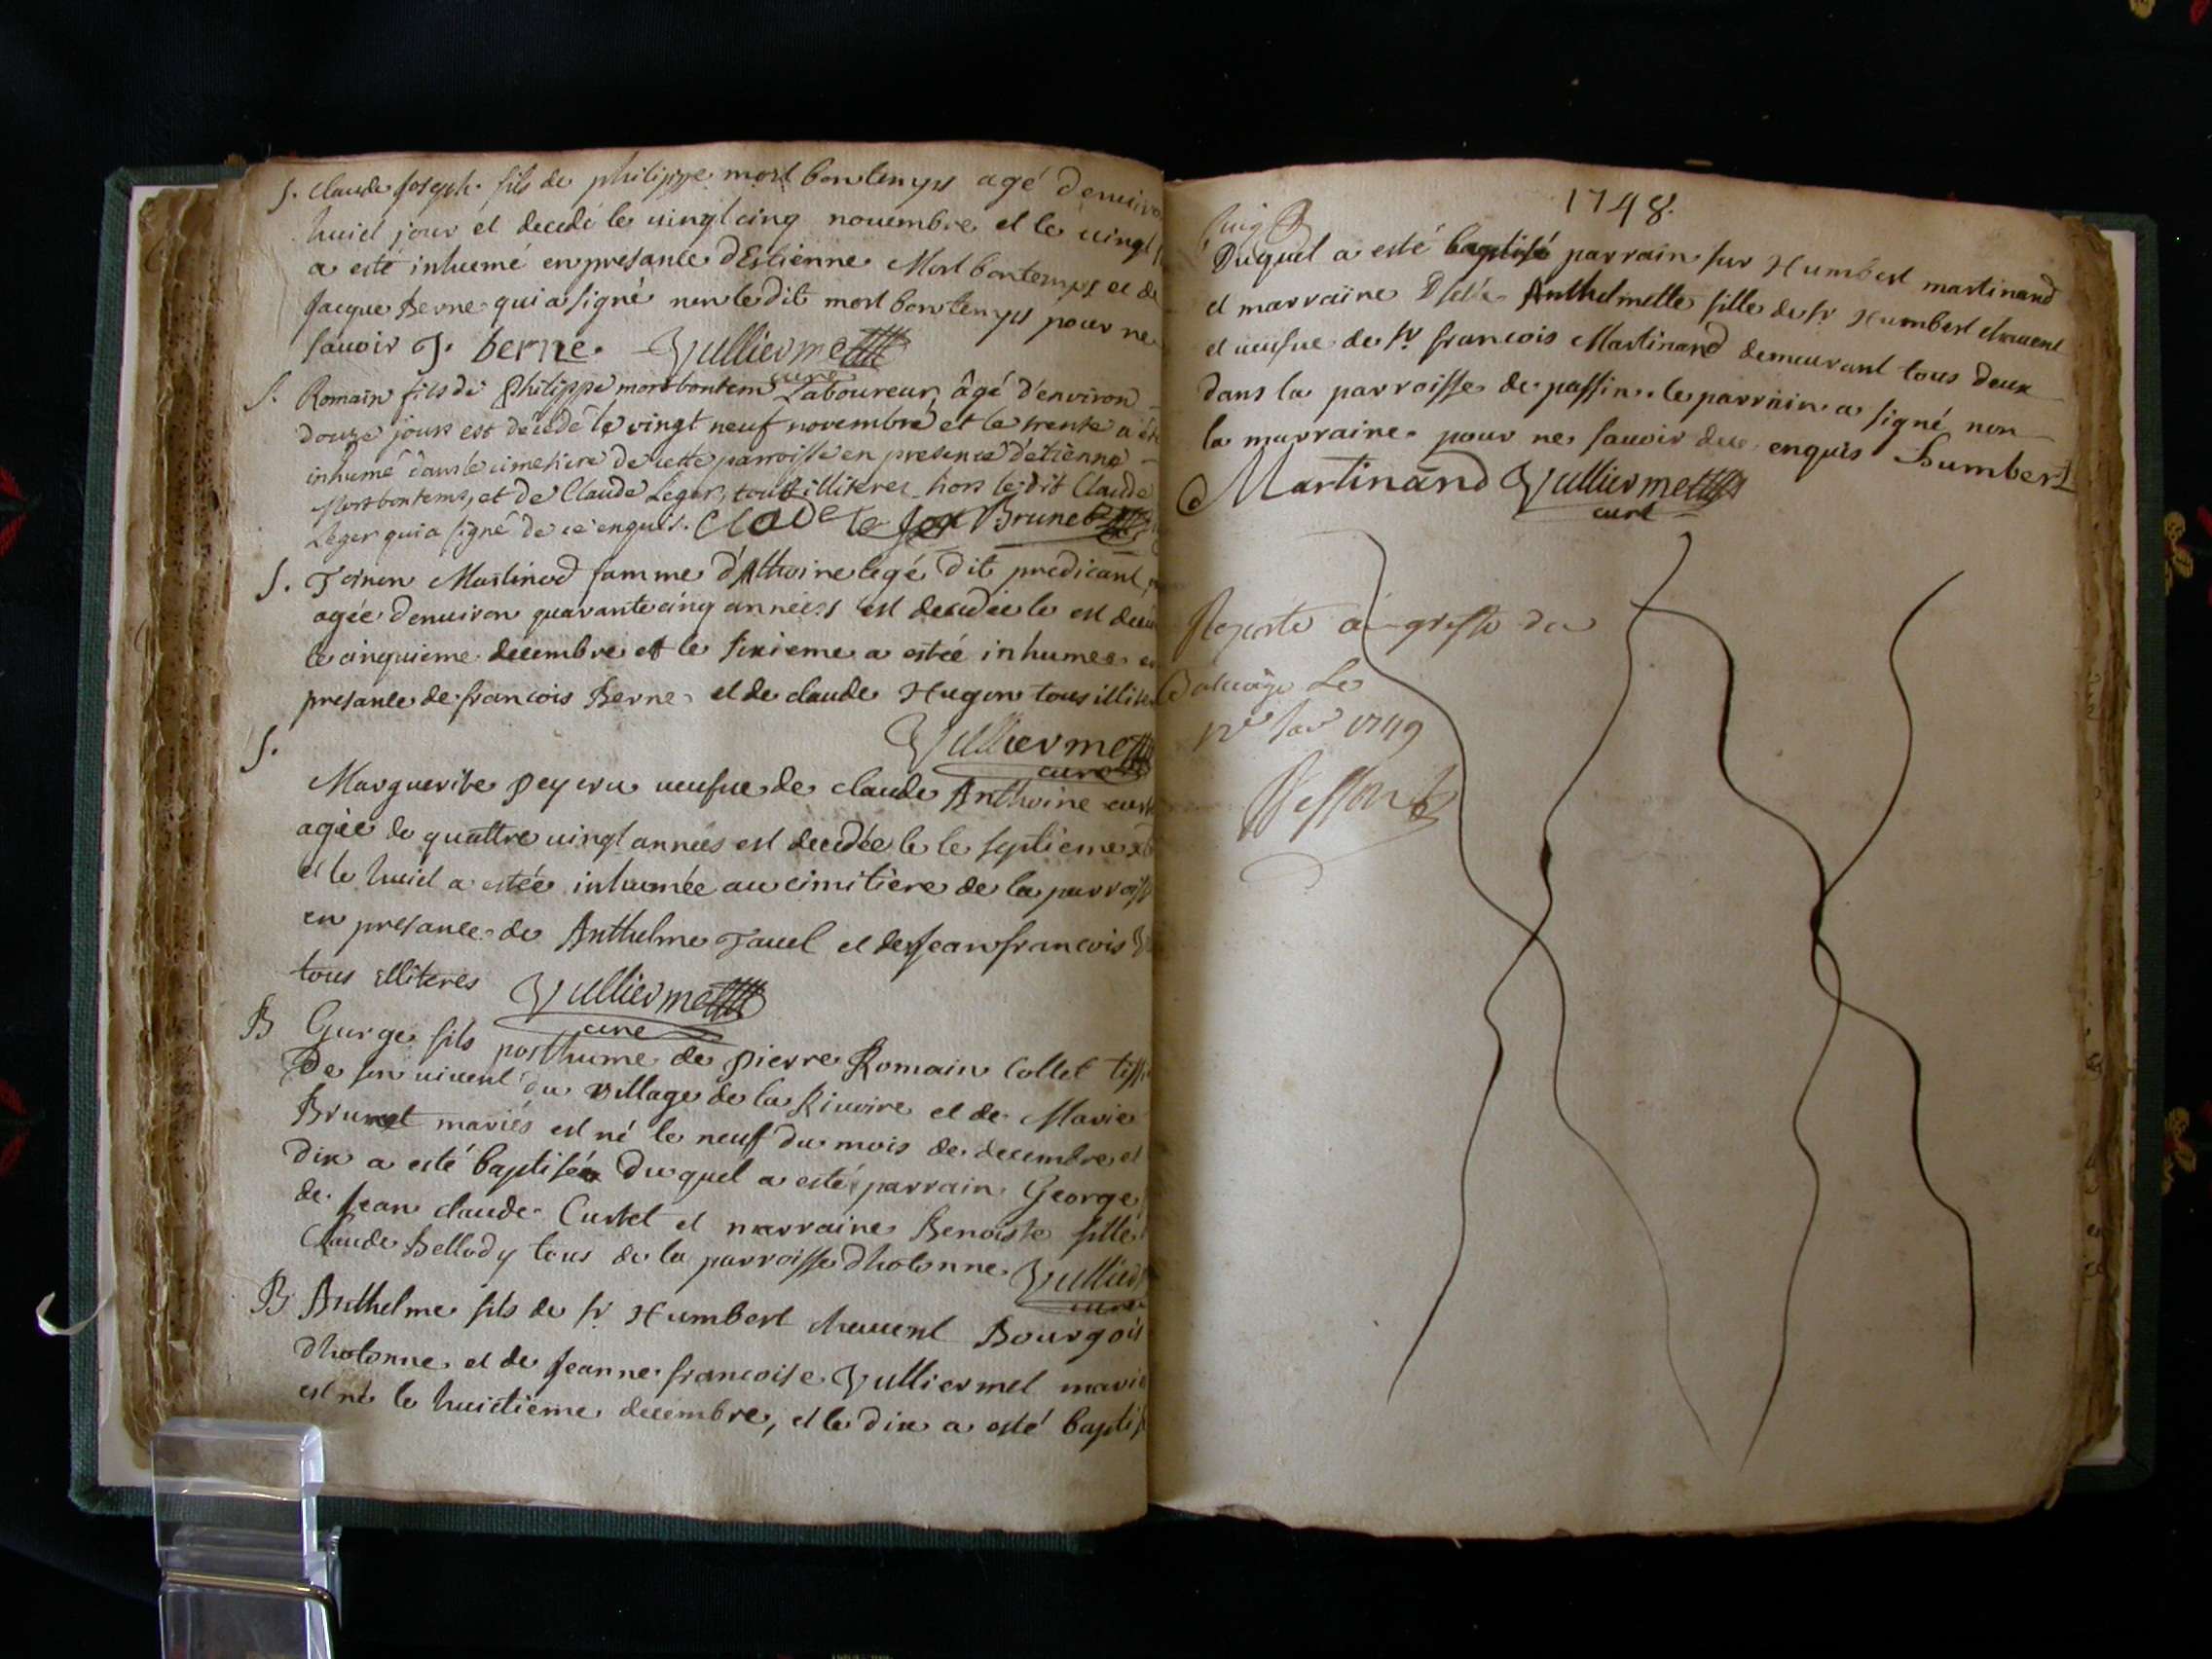 S. Claude Joseph fils de philippe mort bontemps agé denviro
huict jour et decedé le uingt cinq nouembre et le uingt
a esté inhumé en presance dEstienne Mort bontemps et de
Jacque Berne qui a signé non le dit mort bontemps pour ne
sauoir J. berne. Vulliermet
curé
S. Romain fils de Philippe mortbontem Laboureur, âgé d'environ
douze jours est décédé le vingt neuf novembre et le trente a été
inhumé dans le cimetiere de cette parroisse en presence d'étienne
Mortbontems, et de Claude Leger, tous illiteres hors le dit Claude
Leger qui a signé de ce enquis. Brunet
S. Martinod famme d'Athoine legé dit predicant
agée denuiron quarante cinq années est decedée le est
le cinquieme decembre et le sixieme a estée inhumee en
presance de francois Berne et de claude Hugon tous
Vulliermet
curé
S.
Marguerite ueufue de claude Anthoine
agée de quattre uingt années est decedée le le septieme
et le huict a estée inhumée au cimitiere de la parroiss
en presance de Anthelme Tauel et de Jean francois
tous illiteres Vulliermet
curé
B Gurge fils posthume de pierre Romain Collet
De son uiuent du village de la Riuoire et de Marie
Brunet mariés est né le neuf du mois de decembre et
dix a esté baptisé Du quel a esté parrain George
de Jean claude Curtet et marraine Benoiste fille
Claude Bellody tous de la parroisse dhotonne Vullier
curé
B Anthelme fils de sr Humbert chauent Bourgois
dhotonne et de Jeanne francoise Vulliermet marié
est né le huictieme decembre, et le dix a esté baptis
1748.
Duquel a esté baptisé parrain sur Humbert martinand
et marraine Anthelmette fille de sr Humbert chauent
et ueufue de sr francois Martinand demeurant tous deux
dans la parroisse de passin. le parrain a signé non
la marraine pour ne sauoir de ce enquis humbert
Martinand Vulliermet
curé
a greffe du
le
1749